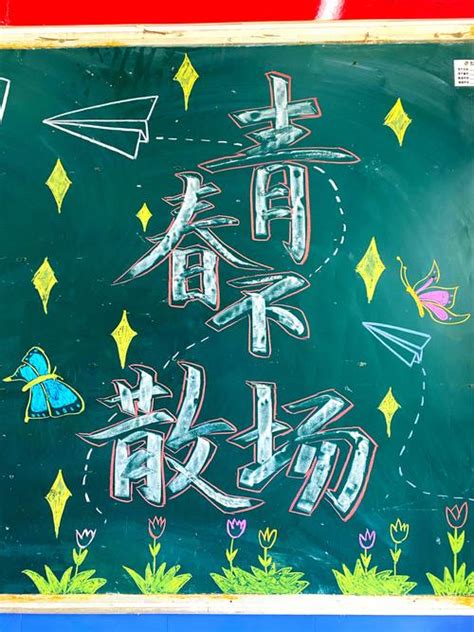 青
春不
散场